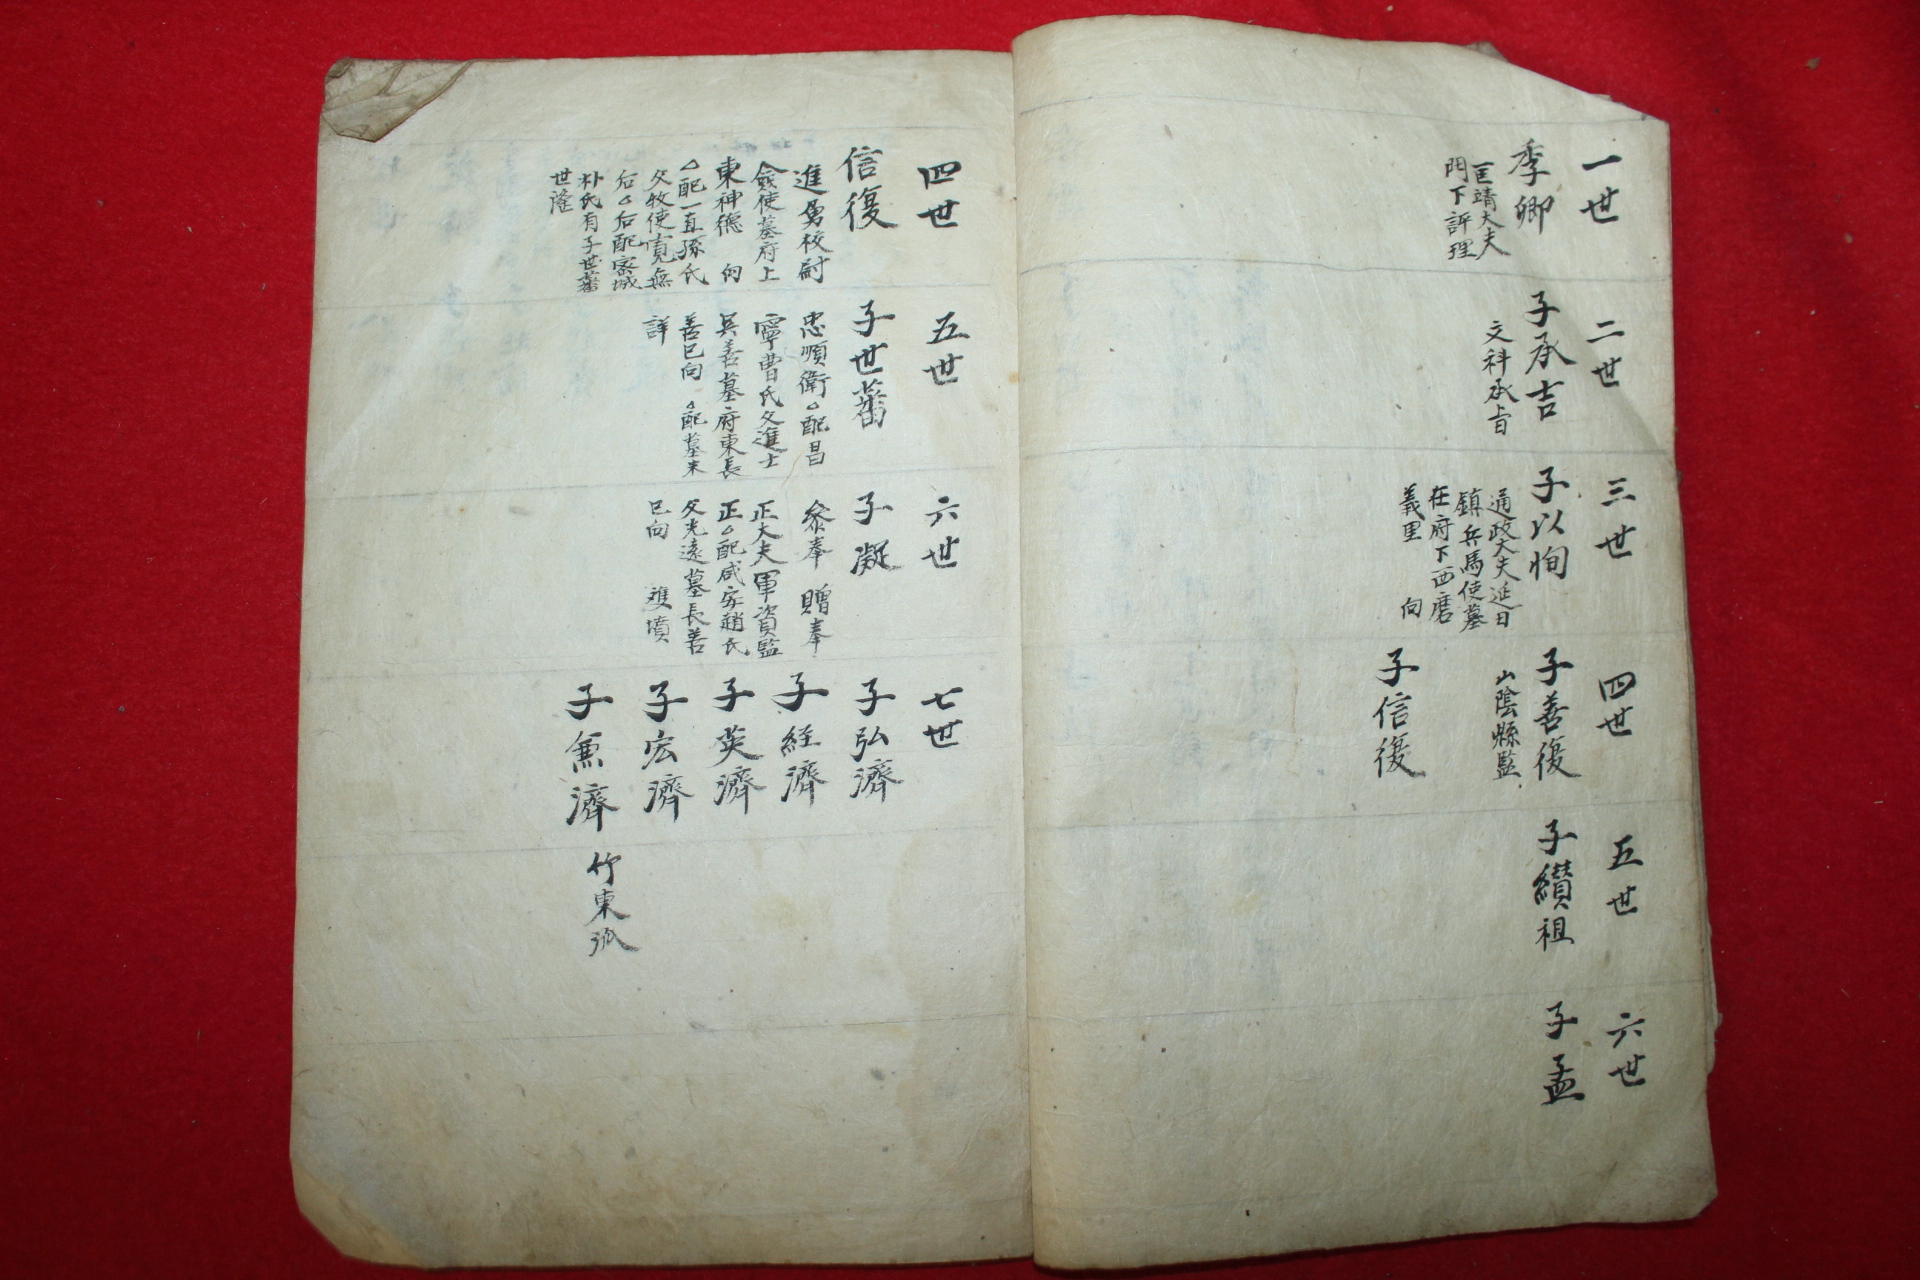 一世
季卿
匡靖大夫
門下評理
二世
子承吉
文科承旨
三世
子以恂
通政大夫延日
鎮兵馬使墓
在府下西磨
義里 向
四世
子善復
山陰縣監
子信復
五世
子纘祖
六世
子孟
四世
信復
進勇校尉
僉使墓府上
東神德 向
△配一直孫氏
父牧使寬無
后△后配密城
朴氏有子世蕃
世隆
五世
子世蕃
忠順衛△配昌
寧曹氏父進士
昊善墓府東長
善巳向△配墓未
詳
六世
子凝
叅奉 贈奉
正大夫軍資監
正△配咸安趙氏
父光遠墓長善
巳向 雙墳
七世
子弘濟
子経濟
子英濟
子宏濟
子無濟
竹東派